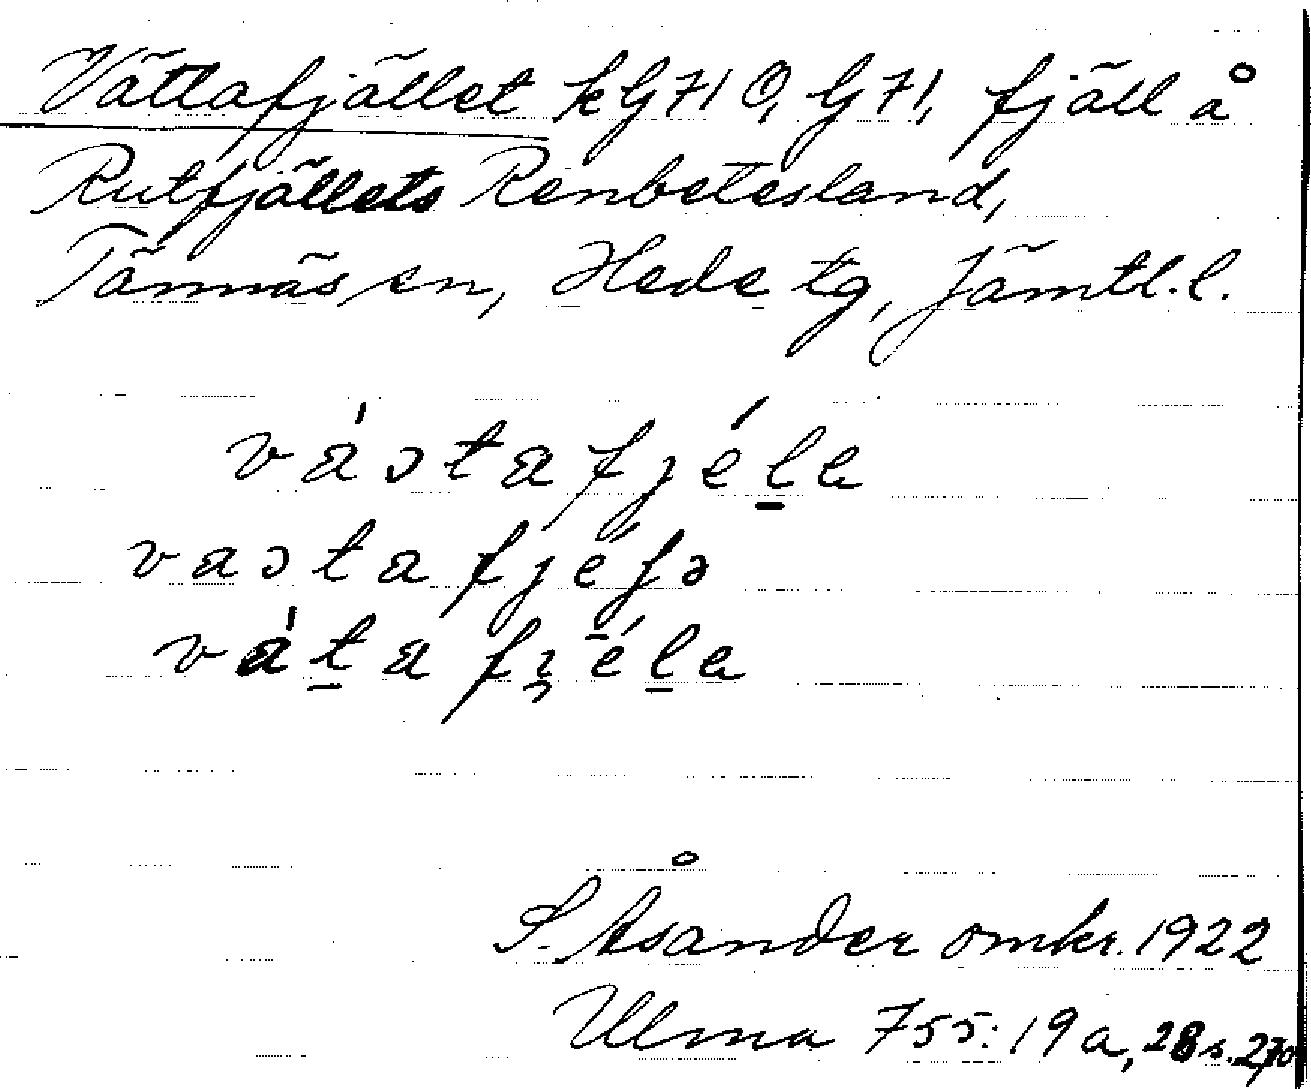 Vättafjället kG710, G71, fjäll å
Rutfjällets Renbetesland,
Tännäs sn, Hede tg, Jämtl. l.
S. Åsander omkr. 1922
Ulma 755: 19a, 28 s. 270